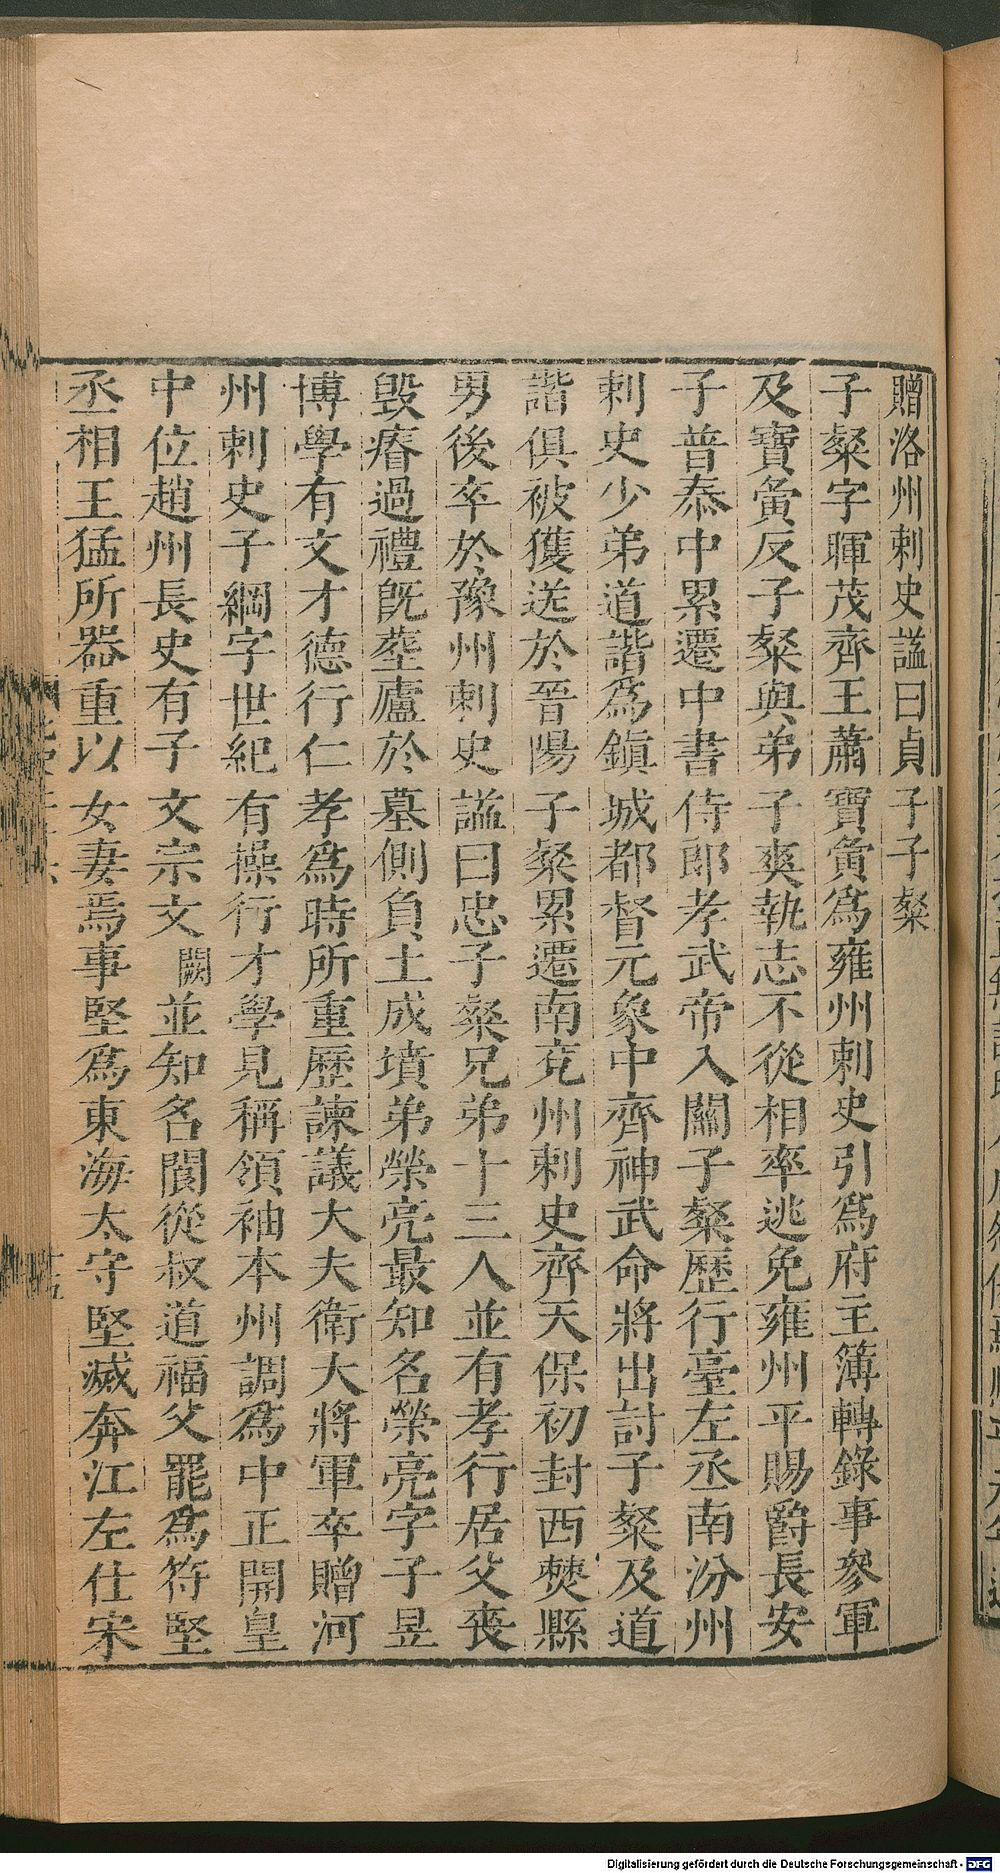 贈洛州刺史謚曰貞子子粲
子粲字暉茂齊王蕭寶夤爲雍州刺史引爲府主簿轉錄事參軍
及寶夤反子粲與弟子爽執志不從相率逃免雍州平賜爵長安
子普泰中累遷中書侍郎孝武帝入關子粲歷行臺左丞南汾州
刺史少弟道諧爲鎭城都督元象中齊神武命將出討子粲及道
諧俱被獲送於晉陽子粲累遷南兗州刺史齊天保初封西僰縣
男後卒於豫州刺史謚曰忠子粲兄弟十三人並有孝行居父喪
毀瘠過禮旣葬廬於墓側負土成墳弟榮亮最知名榮亮字子昱
博學有文才德行仁孝爲時所重歷諫議大夫衛大將軍卒贈河
州刺史子綱字世紀有操行才學見稱領袖本州調爲中正開皇
中位趙州長史有子文宗文闕並知名閬從叔道福父羆爲符堅
丞相王猛所器重以女妻焉事堅爲東海太守堅滅奔江左仕宋
Digitalisierung gefördert durch die Deutsche Forschungsgemeinschaft - DFG